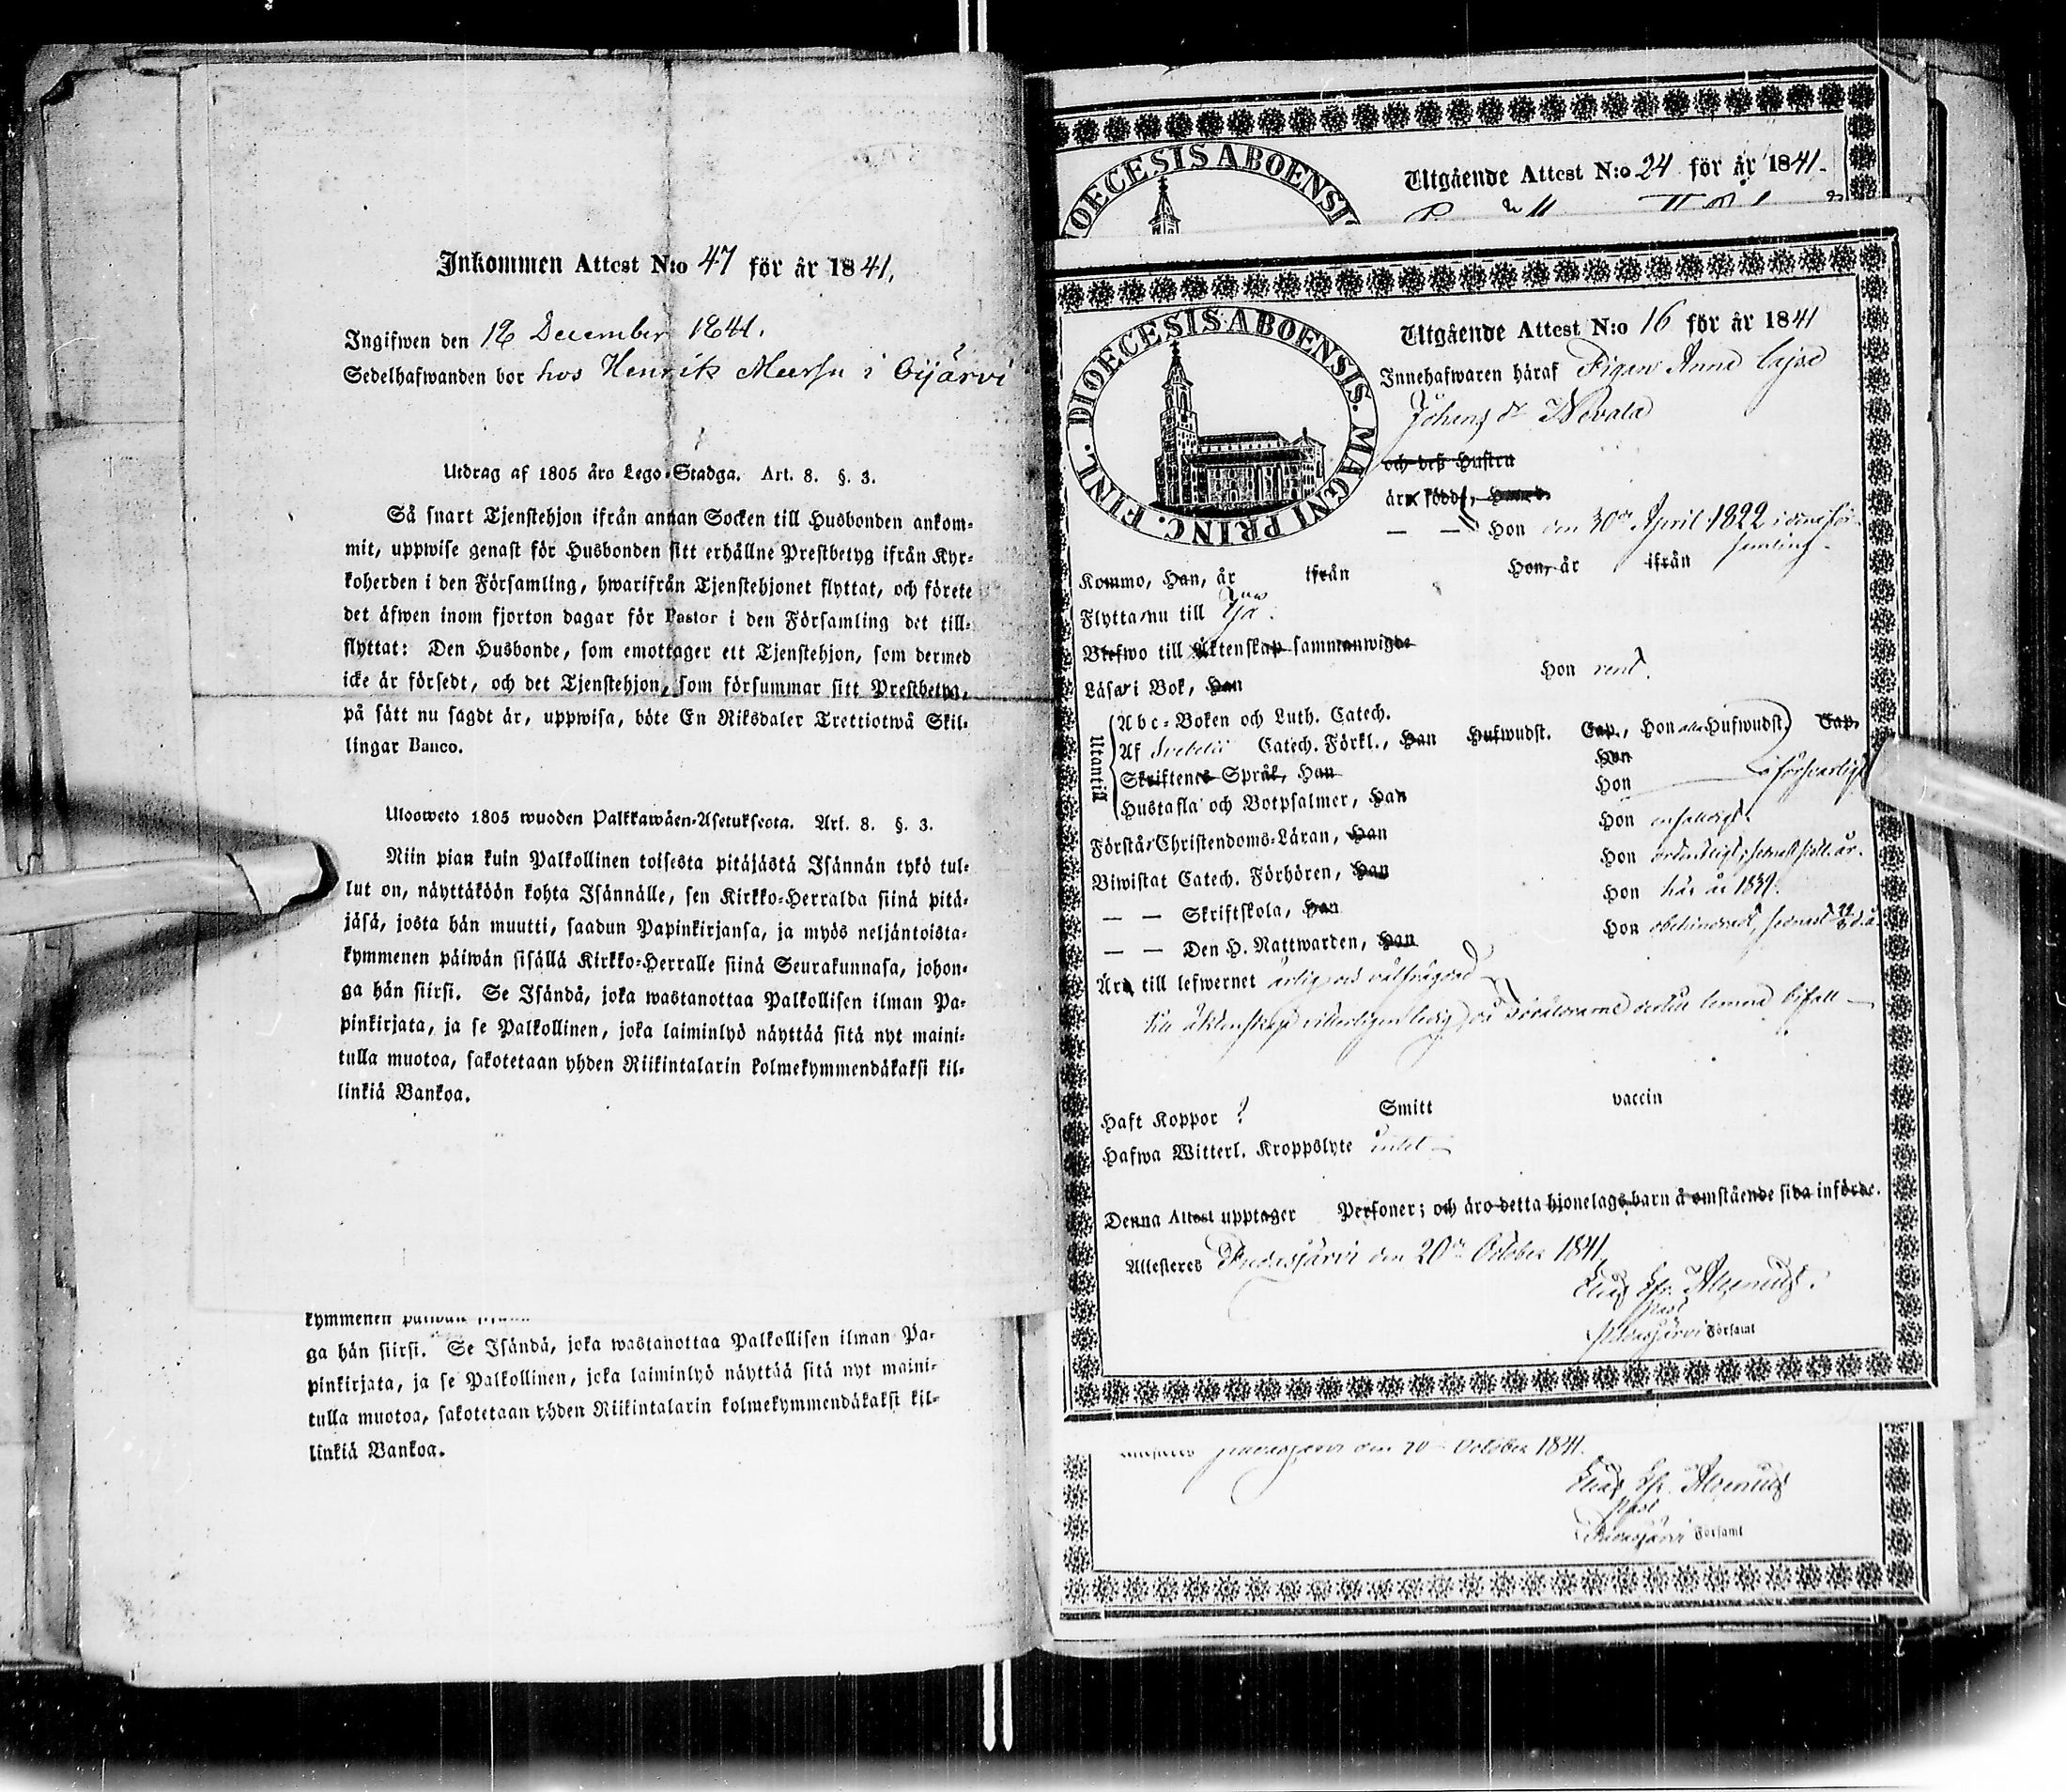 Inkommen Attest N:o 47 för år 1841.
Ingifwen den 18 December 1841.
Sedelhafwanden bor hos Henrik Meersu i Oijärvi
Utdrag af 1805 års Lego-Stadga. Art. 8. §. 3.
Så snart Tjenstehjon ifrån annan Socken till Husbonden ankom-
mit, uppwise genast för Husbonden sitt erhållne Prestbetyg ifrån Kyr-
koherden i den Församling, hwarifrån Tjenstehjonet flyttat, och förete
det äfwen inom fjorton dagar för Pastor i den Församling det till-
flyttat: Den Husbonde, som emottager ett Tjenstehjon, som dermed
icke är försedt, och det Tjenstehjon, som försummar sitt Prestbetyg,
på sätt nu sagdt är, uppwisa, böte En Riksdaler Trettiotwå Skil-
lingar Banco.
Ulosweto 1805 wuoden Palkkawäen-Asetuksesta. Art. 8. §. 3.
Niin pian kuin Palkollinen toisesta pitäjästä Isännän tykö tul-
lut on, näyttäköön kohta Isännälle, sen Kirkko-Herralda siinä pitä-
jäsä, josta hän muutti, saadun Papinkirjansa, ja myös neljäntoista-
kymmenen päiwän sisällä Kirkko-Herralle siinä Seurakunnasa, johon-
ga hän siirsi. Se Isändä, joka wastanottaa Palkollisen ilman Pa-
pinkirjata, ja se Palkollinen, joka laiminlyö näyttää sitä nyt maini-
tulla muotoa, sakotetaan yhden Riikintalarin kolmekymmendäkaksi kil-
linkiä Bankoa.
kymmenen päiwän
ga hän siirsi. Se Isändä, joka wastanottaa Palkollisen ilman Pa-
pinkirjata, ja se Palkollinen, joka laiminlyö näyttää sitä nyt maini-
tulla muotoa, sakotetaan yhden Riikintalarin kolmekymmendäkaksi kil-
linkiä Bankoa.
DIOECESIS ABOENSI
Utgående Attest N:o 24 för år 1841.
DIOECESIS ABOENSIS. MAGNI PRINC. FINL.
Utgående Attest N:o 16 för år 1841
Innehafwaren häraf Pigan Anna Cajsa
Johans dr Nevala
och deß Hustru
äro född,
— — Hon den 30de April 1822 i denna för-
samling.
Kommo, Han, år ifrån Hon, år ifrån
Flytta nu till
Blefwo till Äktenskap sammanwigde
Läsa i Bok, Han Hon rent.
Utantill
Abc-Boken och Luth. Catech.
Af Svebelii Catech. Förkl., Han Hufwudst. Cap., Hon alla Hufwudst. Cap.
Skriftenes Språk, Han Hon
Hustafla och Botpsalmer, Han Hon försvarligt
Förstår Christendoms-Läran, Han Hon enfaldigt.
Biwistat Catech. Förhören, Han Hon ordentligt, senast sistl. år.
— — Skriftskola, Han Hon här år 1839.
— — Den H. Nattwarden, Han Hon obehindradt, senast
Äro till lefwernet ärlig och välfrägdad
till äktenskap vitterligen ledig, och Föräldrarne dertill lemnat bifall
Haft Koppor ? Smitt vaccin
Hafwa Witterl. Kroppslyte intet
Denna Attest upptager Personer; och äro detta hjonelags barn å omstående sida införde.
Attesteres Pudasjärvi den 20de October 1841.
Elias
Past
Pudasjärvi Församl
Pudasjärvi den 20 October 1841.
Elias
Past
Pudasjärvi Församl